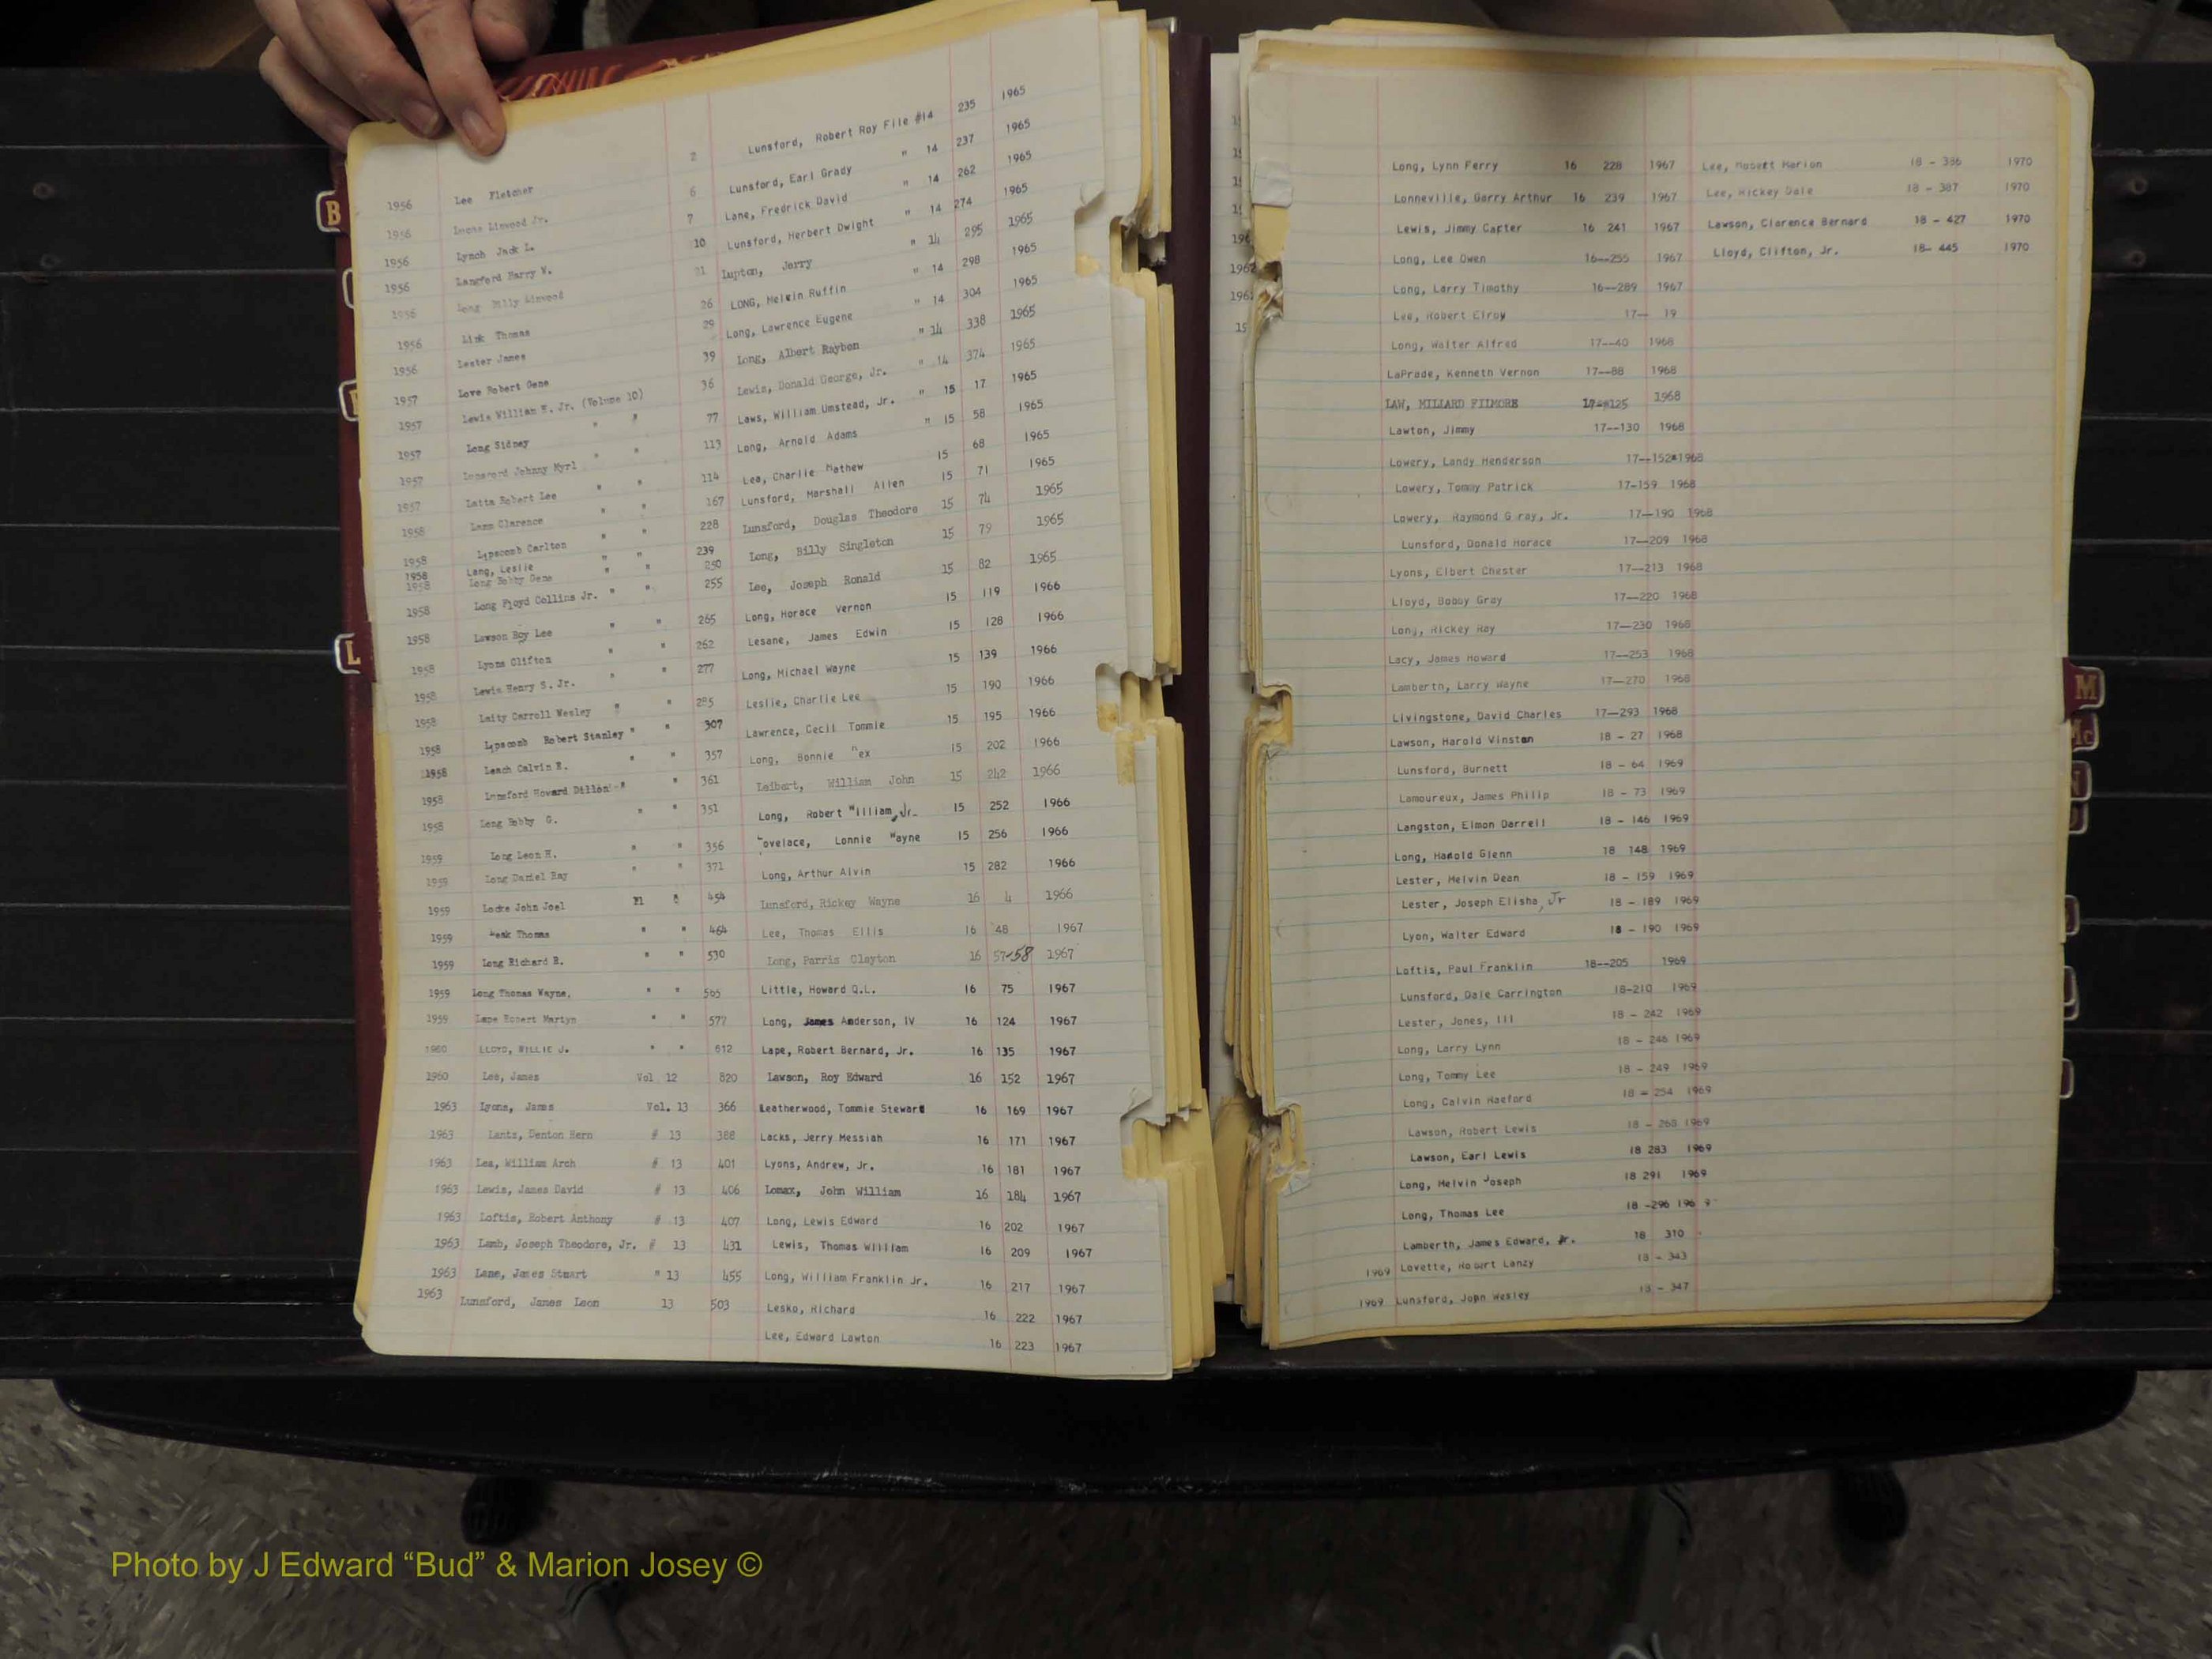 1956 Lee Fletcher 2
1956 Lucas Linwood Jr. 6
1956 Lynch Jack L. 7
1956 Langford Harry W. 10
1956 Long Billy Linwood 21
1956 Link Thomas 26
1956 Lester James 29
1957 Love Robert Gene 39
1957 Lewis William H. Jr. (Volume 10) 36
1957 Long Sidney " " 77
1957 Lunsford Johnny Myrl " " 113
1957 Latta Robert Lee " " 114
1958 Lamm Clarence " " 167
1958 Lipscomb Carlton " " 228
1958 Long, Leslie " " 239
1958 Long Bobby Gene " " 250
1958 Long Floyd Collins Jr. " " 255
1958 Lawson Roy Lee " " 265
1958 Lyons Clifton " " 262
1958 Lewis Henry S. Jr. " " 277
1958 Laity Carroll Wesley " " 285
1958 Lipscomb Robert Stanley " " 307
1958 Leach Calvin E. " " 357
1958 Lunsford Howard Dillon " " 361
1958 Long Bobby G. " " 351
1959 Long Leon H. " " 356
1959 Long Daniel Ray " " 371
1959 Locke John Joel 454
1959 Leak Thomas " " 464
1959 Long Richard R. " " 530
1959 Long Thomas Wayne, " " 565
1959 Lape Robert Martyn " " 577
1960 LLOYD, WILLIE J. " " 612
1960 Lee, James Vol 12 820
1963 Lyons, James Vol. 13 366
1963 Lantz, Denton Hern # 13 388
1963 Lea, William Arch # 13 401
1963 Lewis, James David # 13 406
1963 Loftis, Robert Anthony # 13 407
1963 Lamb, Joseph Theodore, Jr. # 13 431
1963 Lane, James Stuart " 13 455
1963 Lunsford, James Leon 13 503
Lunsford, Robert Roy File #14 235 1965
Lunsford, Earl Grady " 14 237 1965
Lane, Fredrick David " 14 262 1965
Lunsford, Herbert Dwight " 14 274 1965
Lupton, Jerry " 14 295 1965
LONG, Melvin Ruffin " 14 298 1965
Long, Lawrence Eugene " 14 304 1965
Long, Albert Rayben " 14 338 1965
Lewis, Donald George, Jr. " 14 374 1965
Laws, William Umstead, Jr. " 15 17 1965
Long, Arnold Adams " 15 58 1965
Lea, Charlie Mathew 15 68 1965
Lunsford, Marshall Allen 15 71 1965
Lunsford, Douglas Theodore 15 74 1965
Long, Billy Singleton 15 79 1965
Lee, Joseph Ronald 15 82 1965
Long, Horace Vernon 15 119 1966
Lesane, James Edwin 15 128 1966
Long, Michael Wayne 15 139 1966
Leslie, Charlie Lee 15 190 1966
Lawrence, Cecil Tommie 15 195 1966
Long, Bonnie ex 15 202 1966
Leibert, William John 15 242 1966
Long, Robert William, Jr. 15 252 1966
Lovelace, Lonnie Wayne 15 256 1966
Long, Arthur Alvin 15 282 1966
Lunsford, Rickey Wayne 16 4 1966
Lee, Thomas Ellis 16 48 1967
Long, Parris Clayton 16 57-58 1967
Little, Howard Q.L. 16 75 1967
Long, James Anderson, IV 16 124 1967
Lape, Robert Bernard, Jr. 16 135 1967
Lawson, Roy Edward 16 152 1967
Leatherwood, Tommie Stewart 16 169 1967
Lacks, Jerry Messiah 16 171 1967
Lyons, Andrew, Jr. 16 181 1967
Lomax, John William 16 184 1967
Long, Lewis Edward 16 202 1967
Lewis, Thomas William 16 209 1967
Long, William Franklin Jr. 16 217 1967
Lesko, Richard 16 222 1967
Lee, Edward Lawton 16 223 1967
Long, Lynn Ferry 16 228 1967
Lonneville, Garry Arthur 16 239 1967
Lewis, Jimmy Carter 16 241 1967
Long, Lee Owen 16--255 1967
Long, Larry Timothy 16--289 1967
Lee, Robert Elroy 17-- 19
Long, Walter Alfred 17--40 1968
LaPrade, Kenneth Vernon 17--88 1968
LAW, MILLARD FILMORE 17--125 1968
Lawton, Jimmy 17--130 1968
Lowery, Landy Henderson 17--152 1968
Lowery, Tommy Patrick 17-159 1968
Lowery, Raymond G ray, Jr. 17--190 1968
Lunsford, Donald Horace 17--209 1968
Lyons, Elbert Chester 17--213 1968
Lloyd, Bobby Gray 17--220 1968
Long, Rickey Ray 17--230 1968
Lacy, James Howard 17--253 1968
Lamberth, Larry Wayne 17--270 1968
Livingstone, David Charles 17--293 1968
Lawson, Harold Vinston 18 - 27 1968
Lunsford, Burnett 18 - 64 1969
Lamoureux, James Philip 18 - 73 1969
Langston, Elmon Darrell 18 - 146 1969
Long, Harold Glenn 18 148 1969
Lester, Melvin Dean 18 - 159 1969
Lester, Joseph Elisha, Jr 18 - 189 1969
Lyon, Walter Edward 18 - 190 1969
Loftis, Paul Franklin 18--205 1969
Lunsford, Dale Carrington 18-210 1969
Lester, Jones, III 18 - 242 1969
Long, Larry Lynn 18 - 246 1969
Long, Tommy Lee 18 - 249 1969
Long, Calvin Haeford 18 - 254 1969
Lawson, Robert Lewis 18 - 268 1969
Lawson, Earl Lewis 18 283 1969
Long, Melvin Joseph 18 291 1969
Long, Thomas Lee 18 -296 196 9
Lamberth, James Edward, Jr. 18 310
1969 Lovette, Robert Lanzy 18 - 343
1969 Lunsford, John Wesley 18 - 347
Lee, Robert Marion 18 - 386 1970
Lee, Rickey Dale 18 - 387 1970
Lawson, Clarence Bernard 18 - 427 1970
Lloyd, Clifton, Jr. 18- 445 1970
B
L
M
Mc
N
Photo by J Edward “Bud” & Marion Josey ©